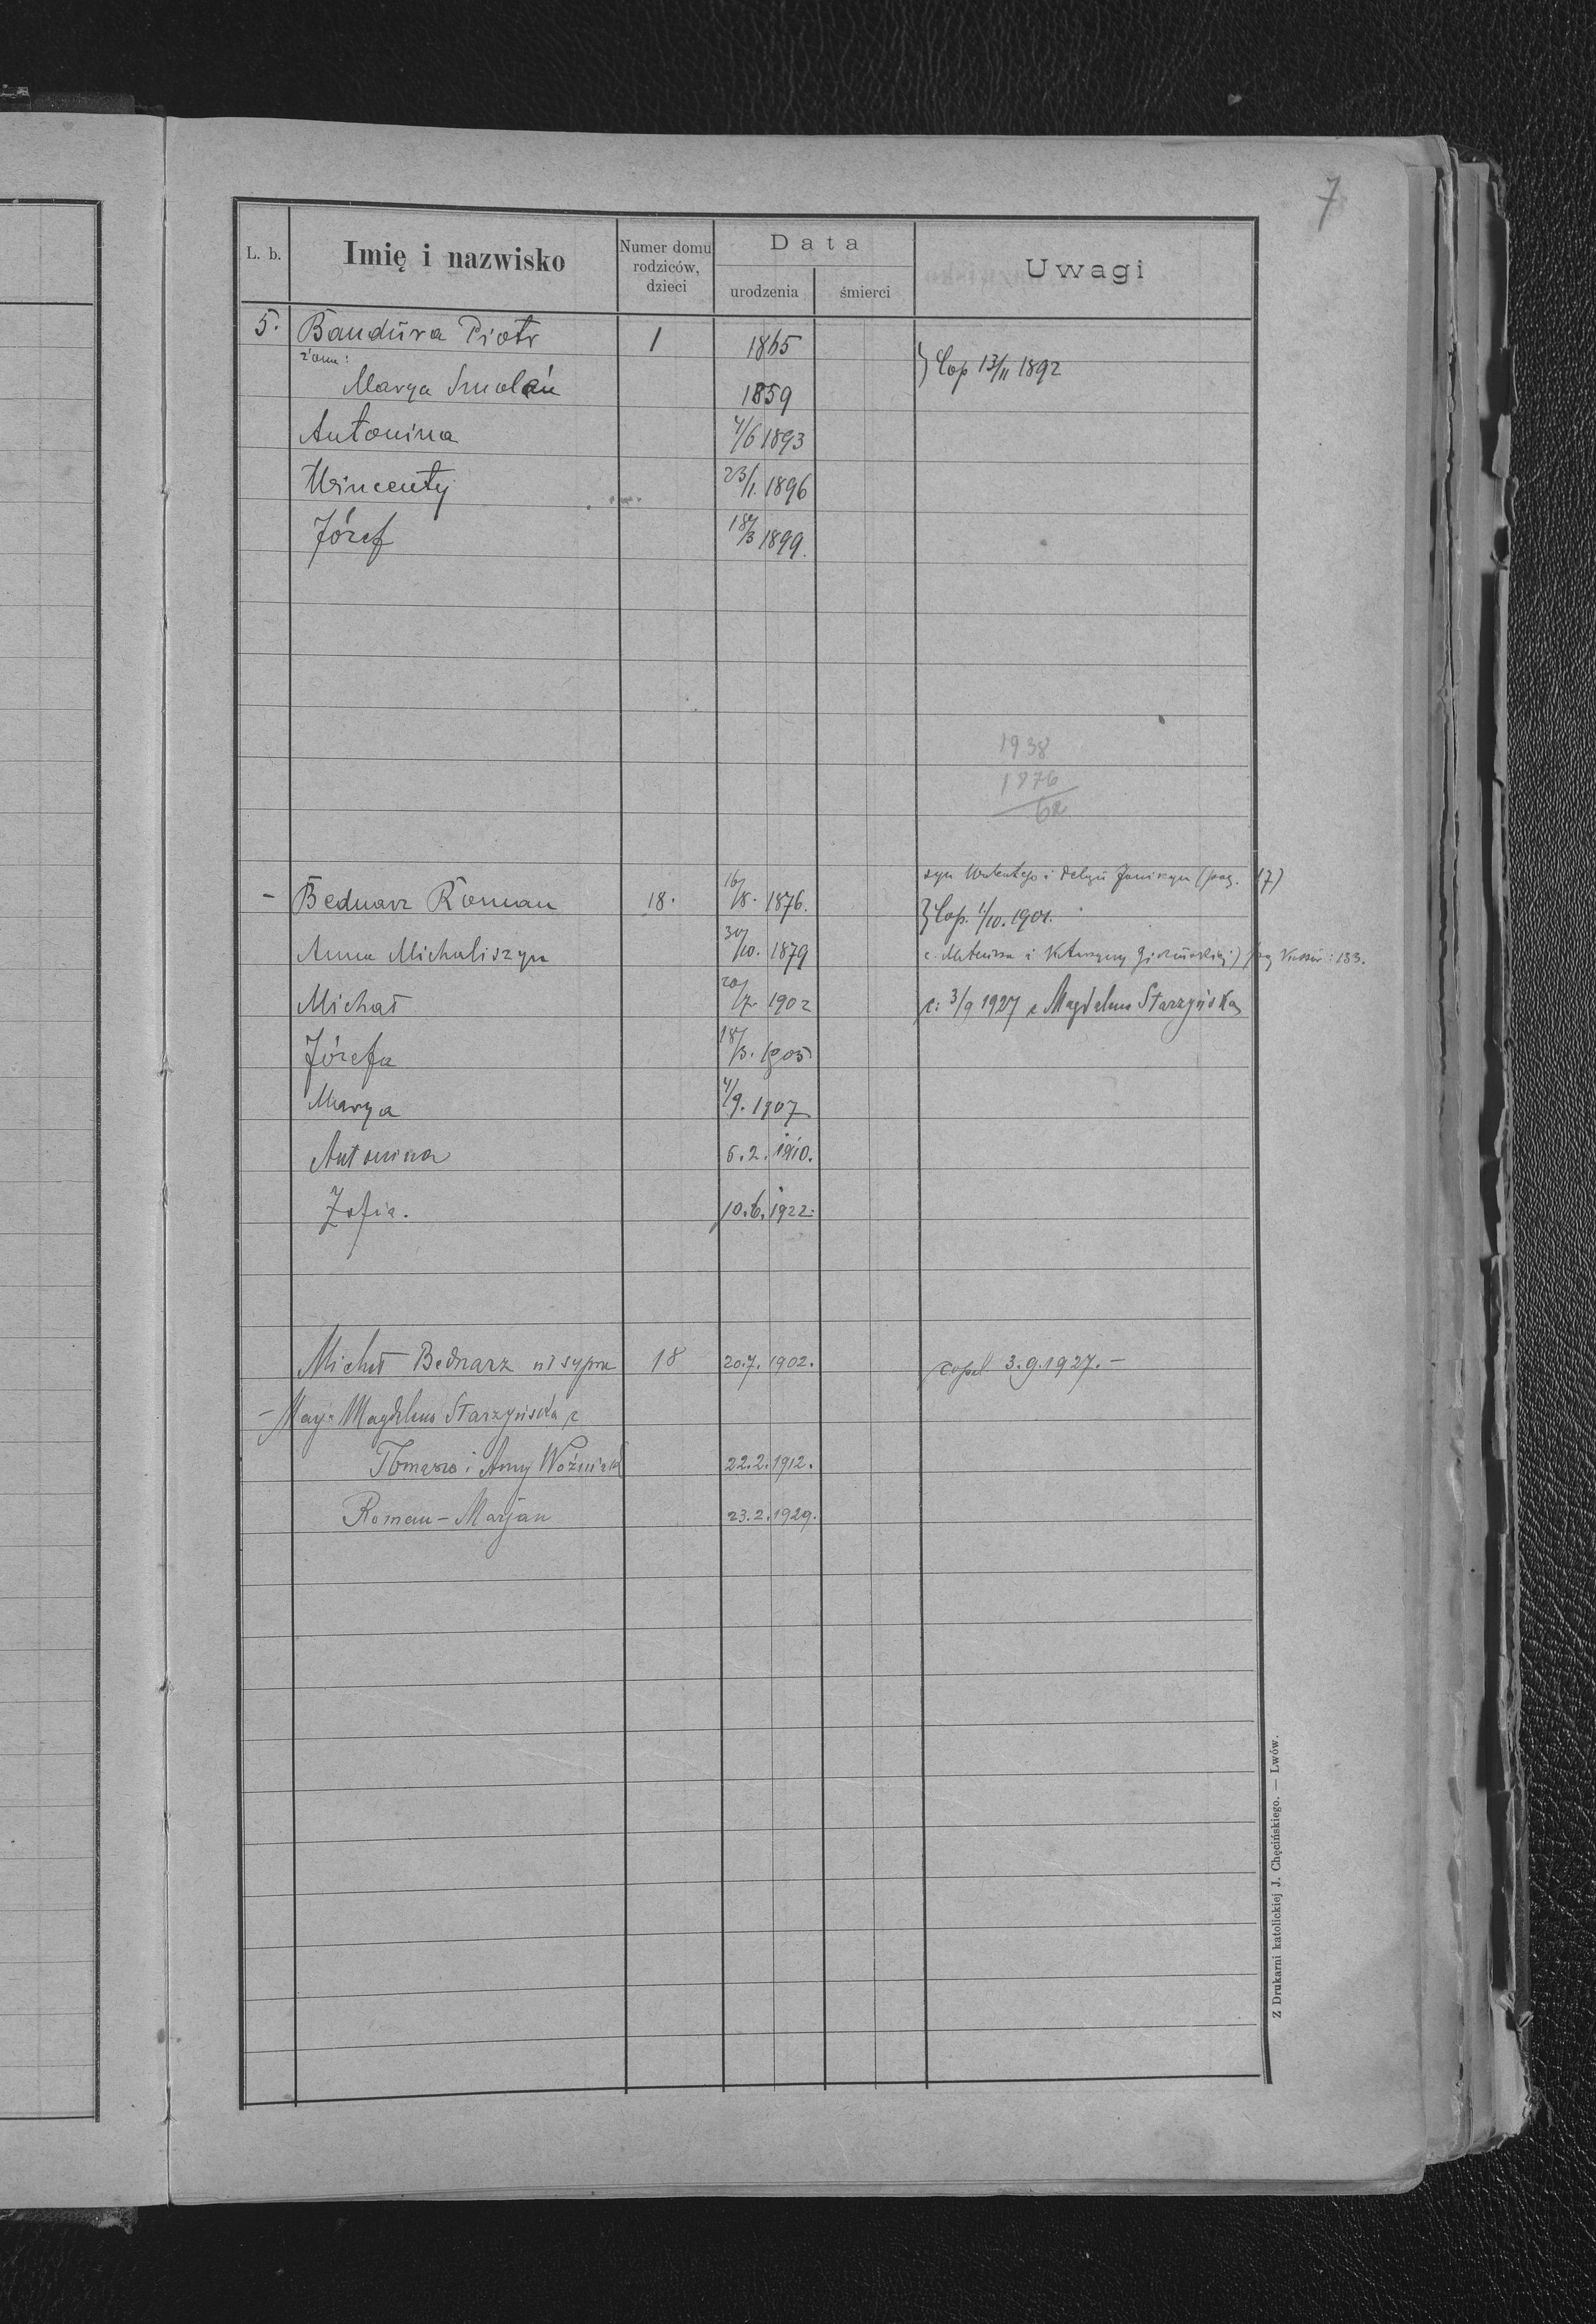 7
L. b. Imię i nazwisko Numer domu rodziców, dzieci Data urodzenia śmierci Uwagi
5. Bandura Piotr 1 1865
żona: } Cop 13/II 1892
Marya Smolań 1859
Antonina 4/6 1893
Wincenty 23/1. 1896
Józef 18/3 1899.
1938
1876
62
syn Walentego i (pag. 17)
- Bednarz Roman 18. 16/8. 1876. } Cop. 1/10. 1901.
Anna Michaliszyn 30/10. 1879 c. Mateusza i Katarzyny : 183.
Michał 20/7. 1902 c: 3/9 1927 z Magdalena Starzyńska
Józefa 18/3. 1905
Marya 4/9. 1907
Antonina 6.2.1910.
Zofia. 10.6.1922.
Michał Bednarz 18 20.7.1902. copul 3.9.1927. -
- Magdalena Starzyńska c
Tomasza i Anny Woźniak 22.2.1912.
Roman - Marjan 23.2.1929.
Z Drukarni katolickiej J. Chęcińskiego. — Lwów.